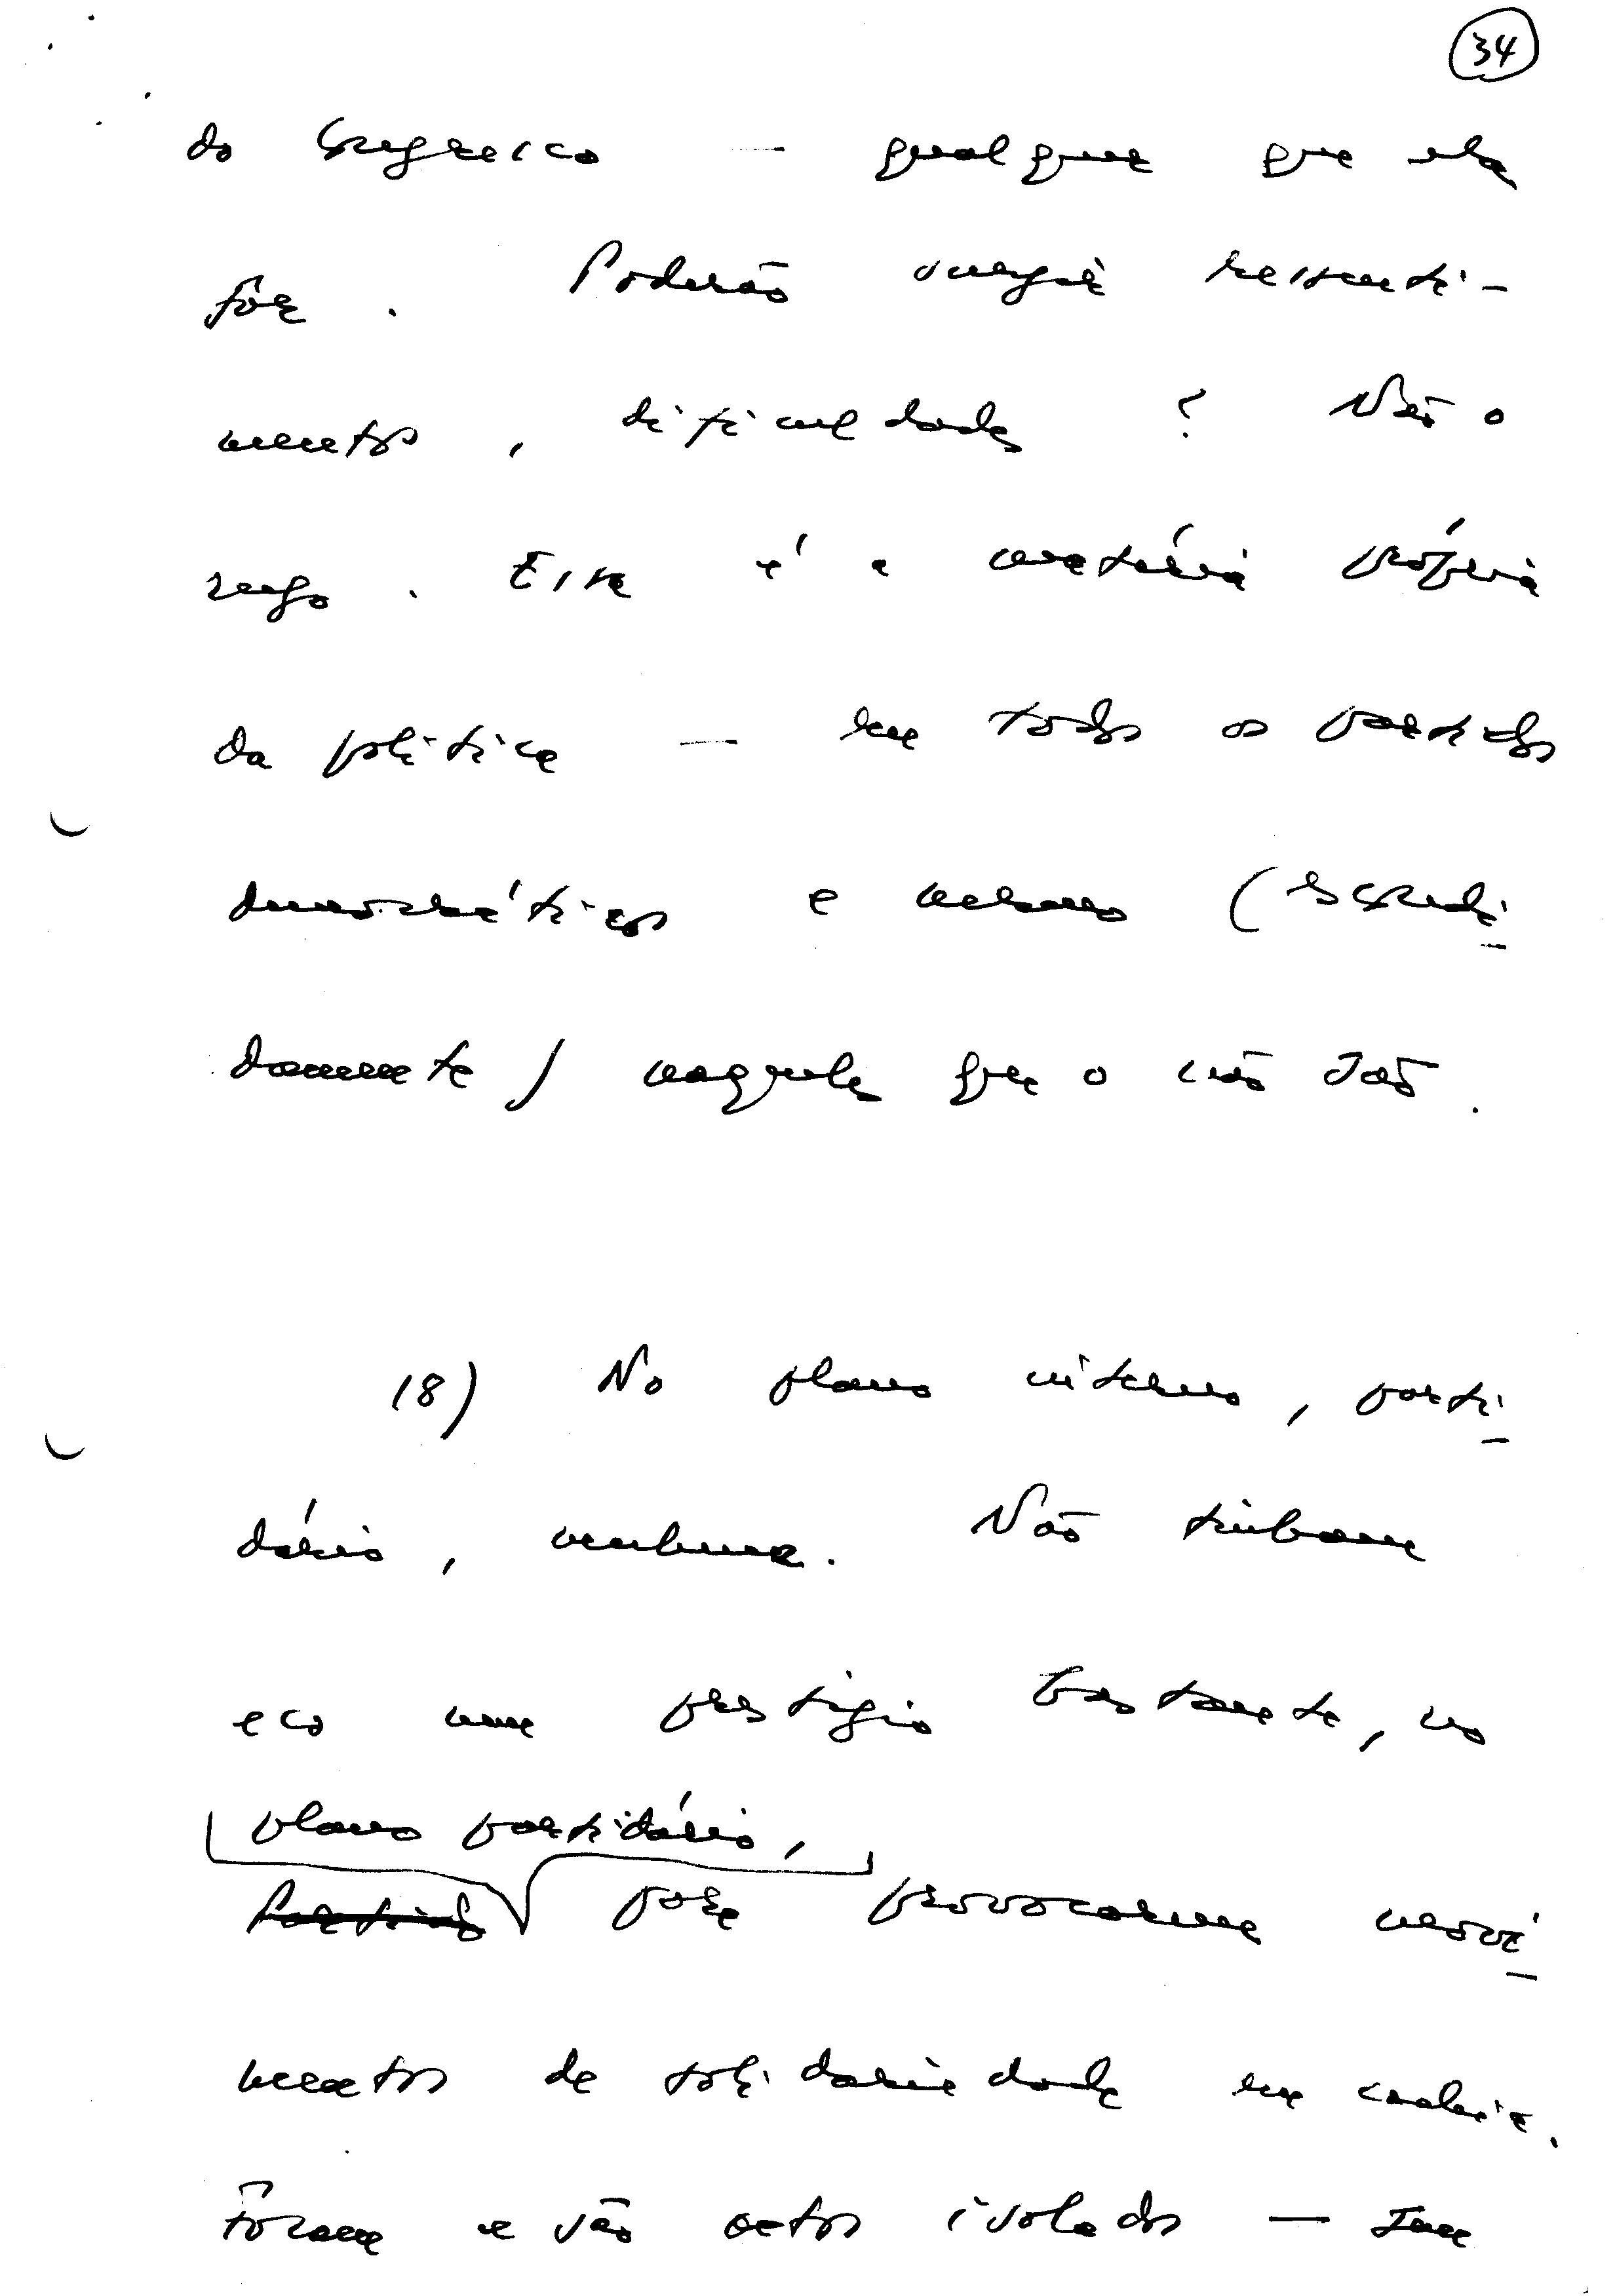 34
do Congresso — qualquer que ela
fôr. Poderão surgir ressenti-
mentos, dificuldades? Não o
nego. Essa é a matéria própria
da política — em todos os partidos
democráticos e mesmo (escondi-
damente) naqueles que o não são.
18) No plano interno, parti-
dário, nenhuma. Não tinham
eco nem prestígio bastante, no
plano partidário,
para provocarem movi-
mentos de solidariedade em cadeia.
Foram e são actos isolados — sem